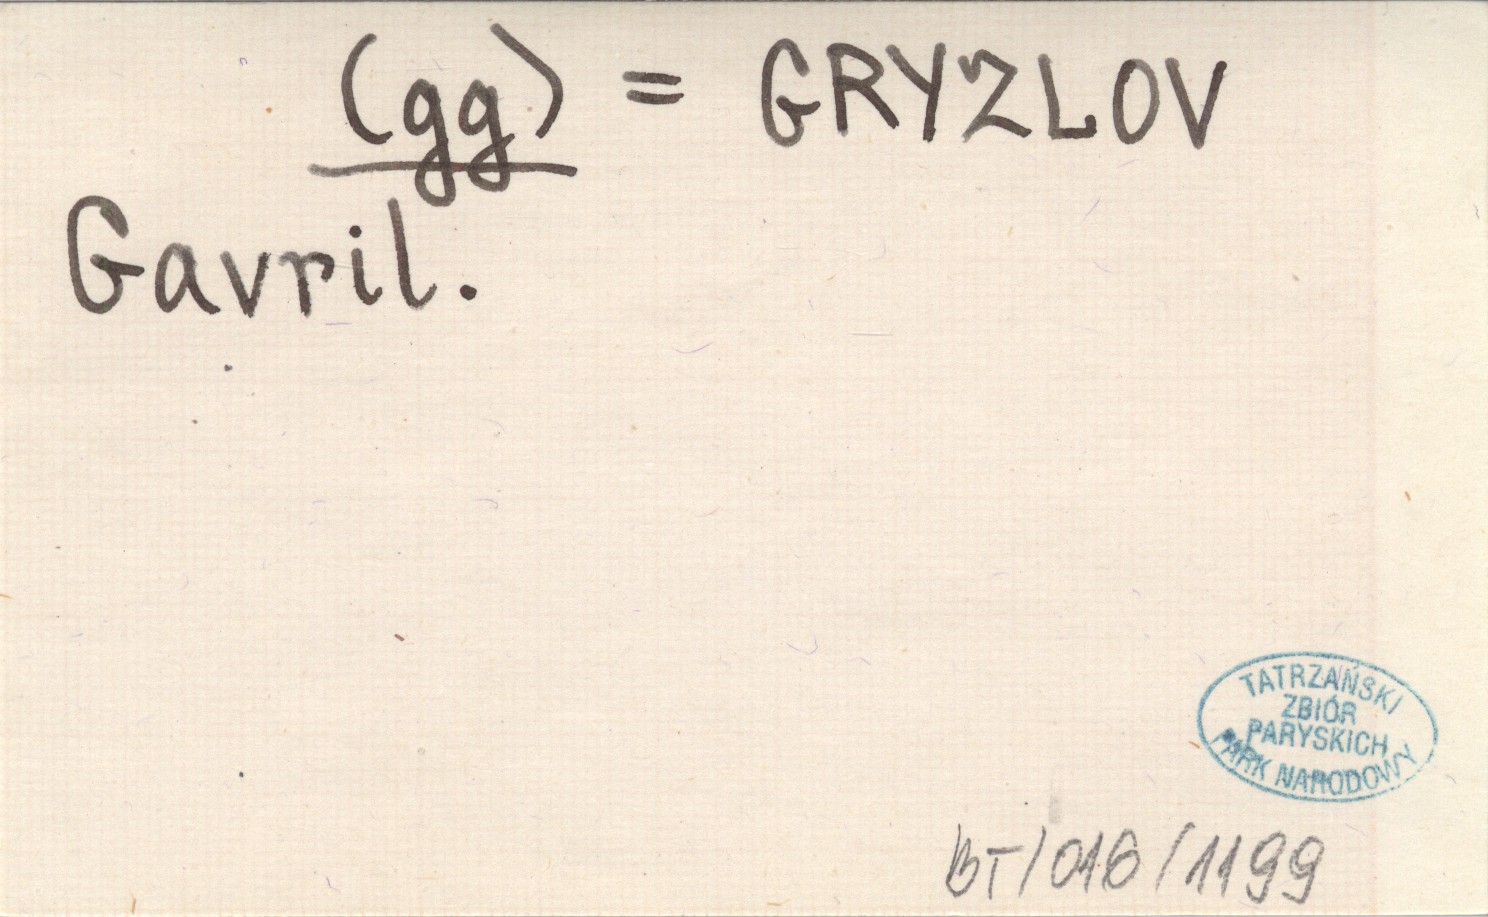 (gg) = GRYZLOV
Gavril.
TATRZAŃSKI
ZBIÓR
PARYSKICH
PARK NARODOWY
BT/016/1199